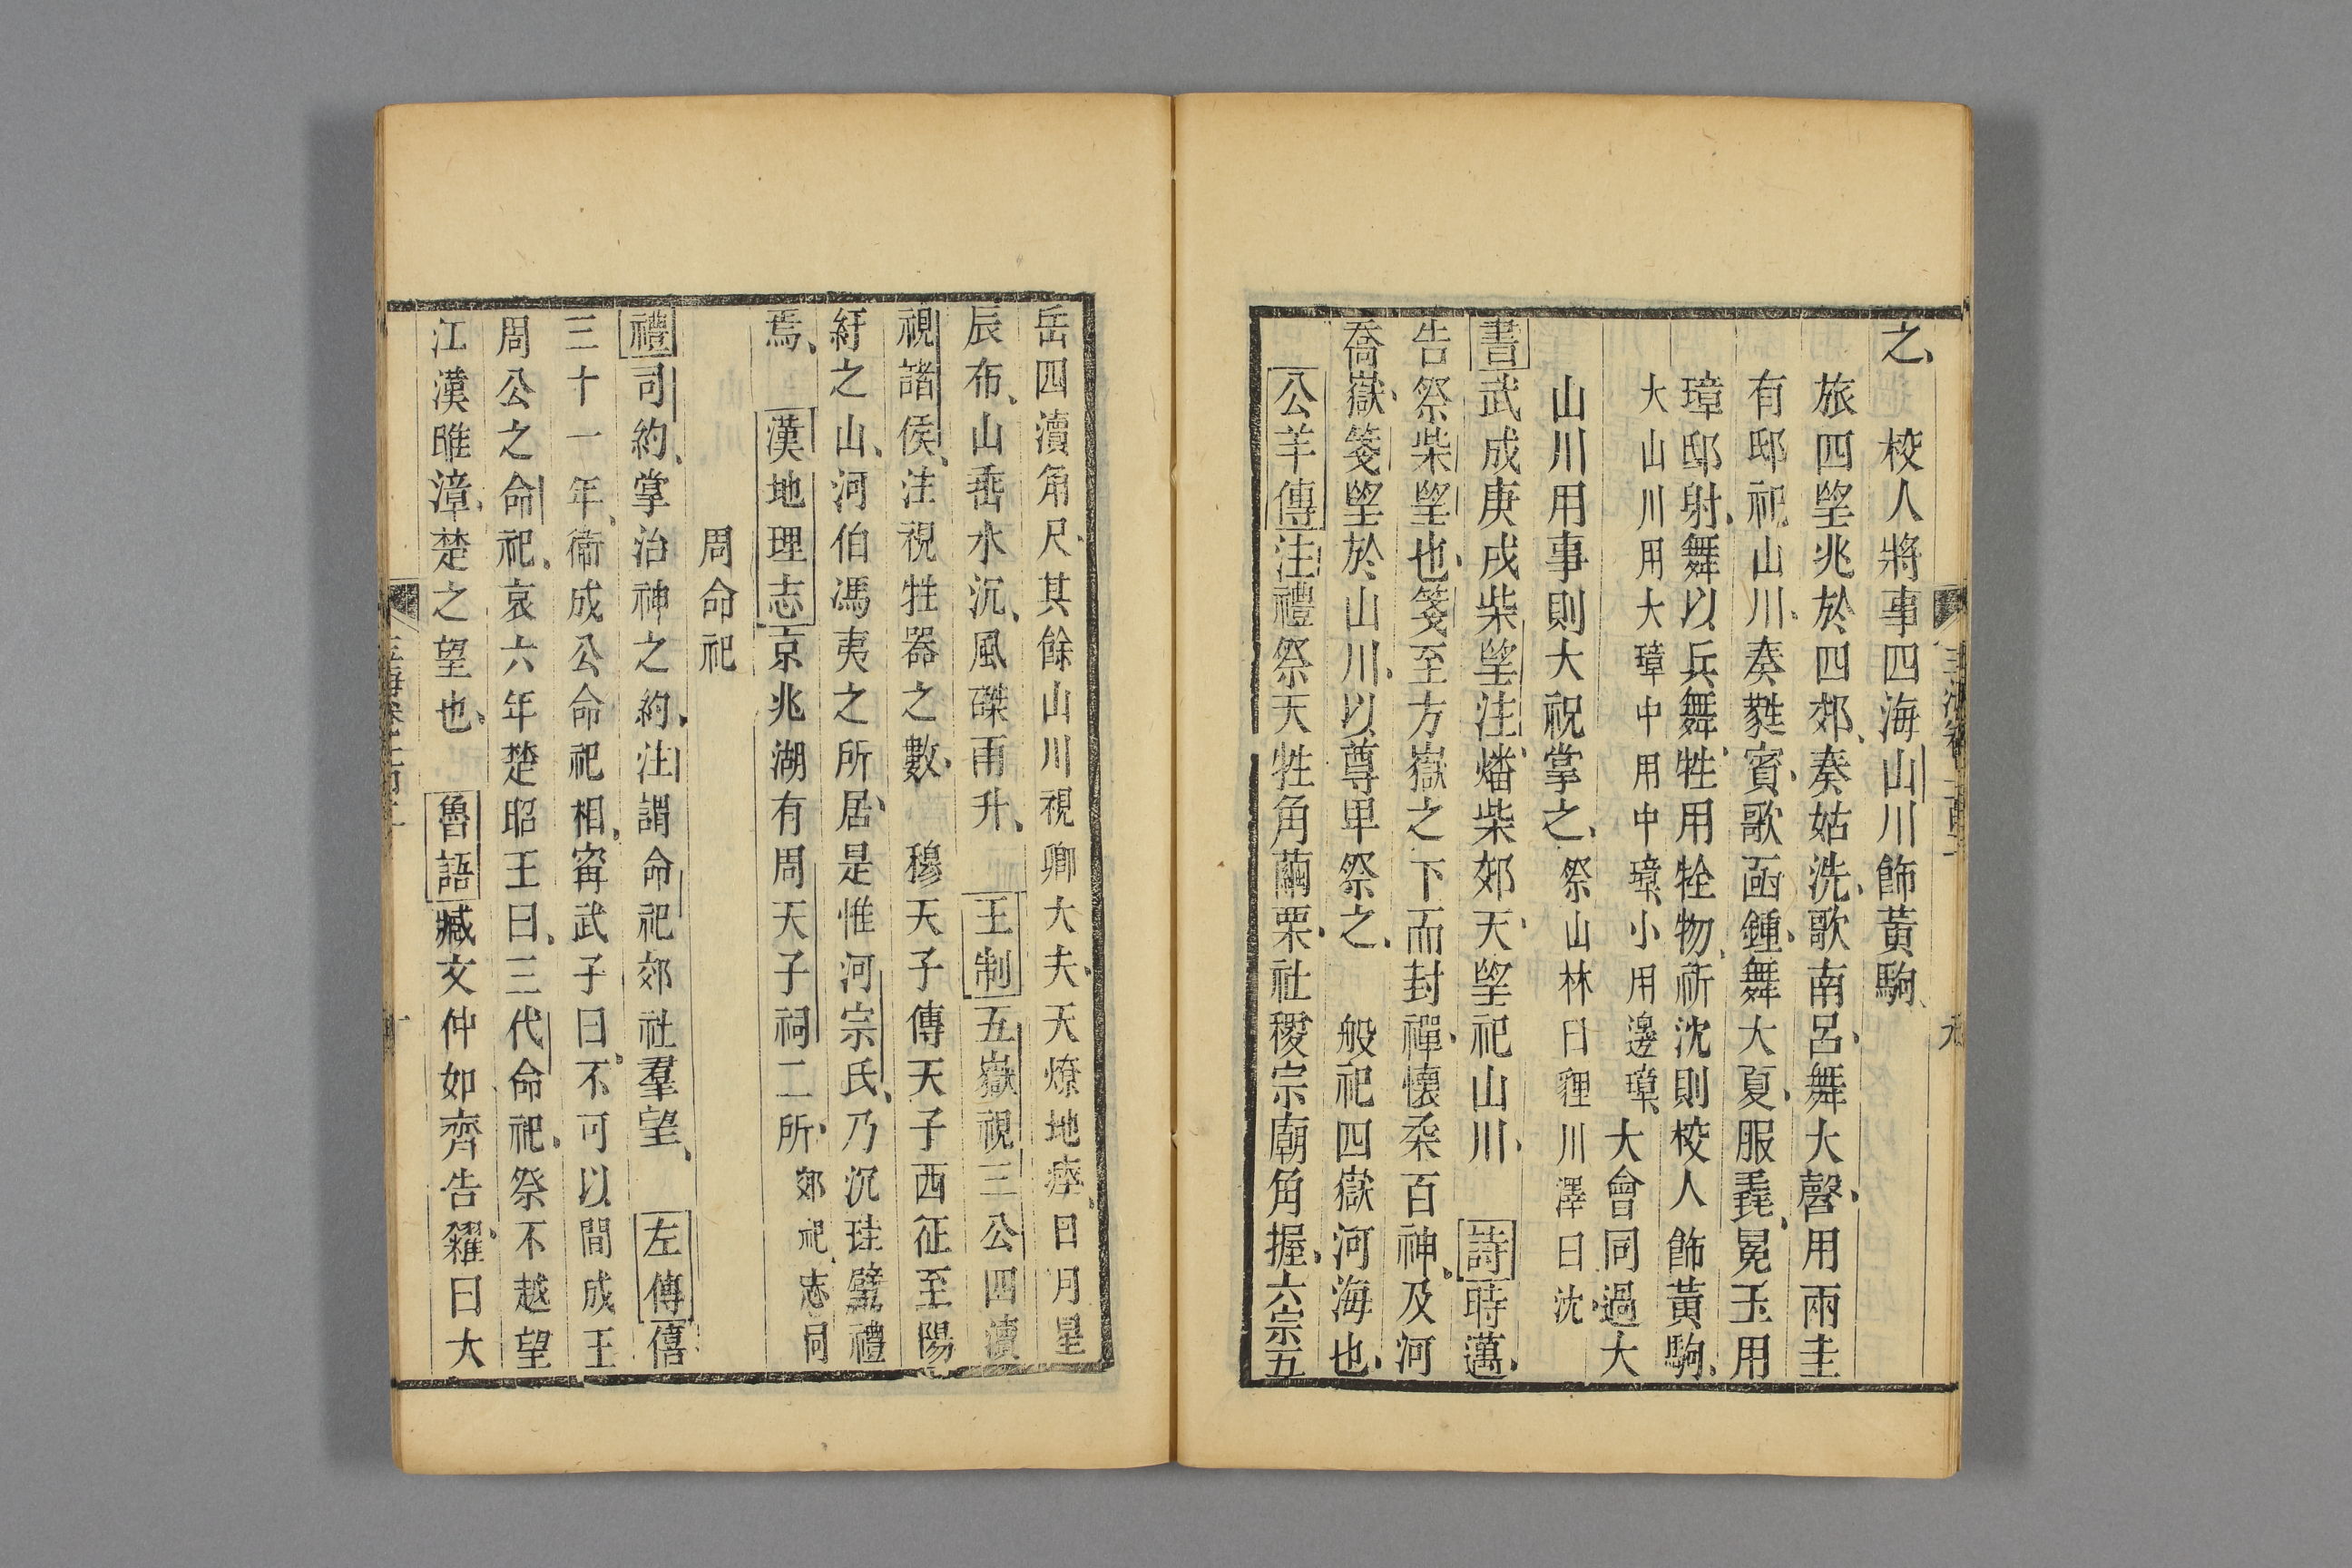 之　校人將事四海山川飾黃駒
旅四望兆於四郊奏姑洗歌南呂舞大磬用兩圭
有邸祀山川奏蕤賓歌函鍾舞大夏服毳冕玉用
璋邸射舞以兵舞牲用牷物祈沈則校人飾黃駒
大山川用大璋中用中璋小用邊璋大會同過大
山川用事則大祝掌之祭山林曰貍川澤曰沈
書武成庚戌柴望注燔柴郊天望祀山川　詩時邁
告祭柴望也箋至方嶽之下而封禪懷柔百神及河
喬嶽箋望於山川以尊卑祭之　般祀四嶽河海也
公羊傳注禮祭天牲角繭栗社稷宗廟角握六宗五
岳四瀆角尺其餘山川視卿大夫天燎地瘞日月星
辰布山垂水沉風磔雨升　王制五嶽視三公四瀆
視諸侯注視牲器之數　穆天子傳天子西征至陽
紆之山河伯馮夷之所居是惟河宗氏乃沉珪璧禮
焉　漢地理志京兆湖有周天子祠二所郊祀志同
周命祀
禮司約掌治神之約注謂命祀郊社羣望　左傳僖
三十一年衞成公命祀相甯武子曰不可以間成王
周公之命祀哀六年楚昭王曰三代命祀祭不越望
江漢雎漳楚之望也　魯語臧文仲如齊告糴曰大